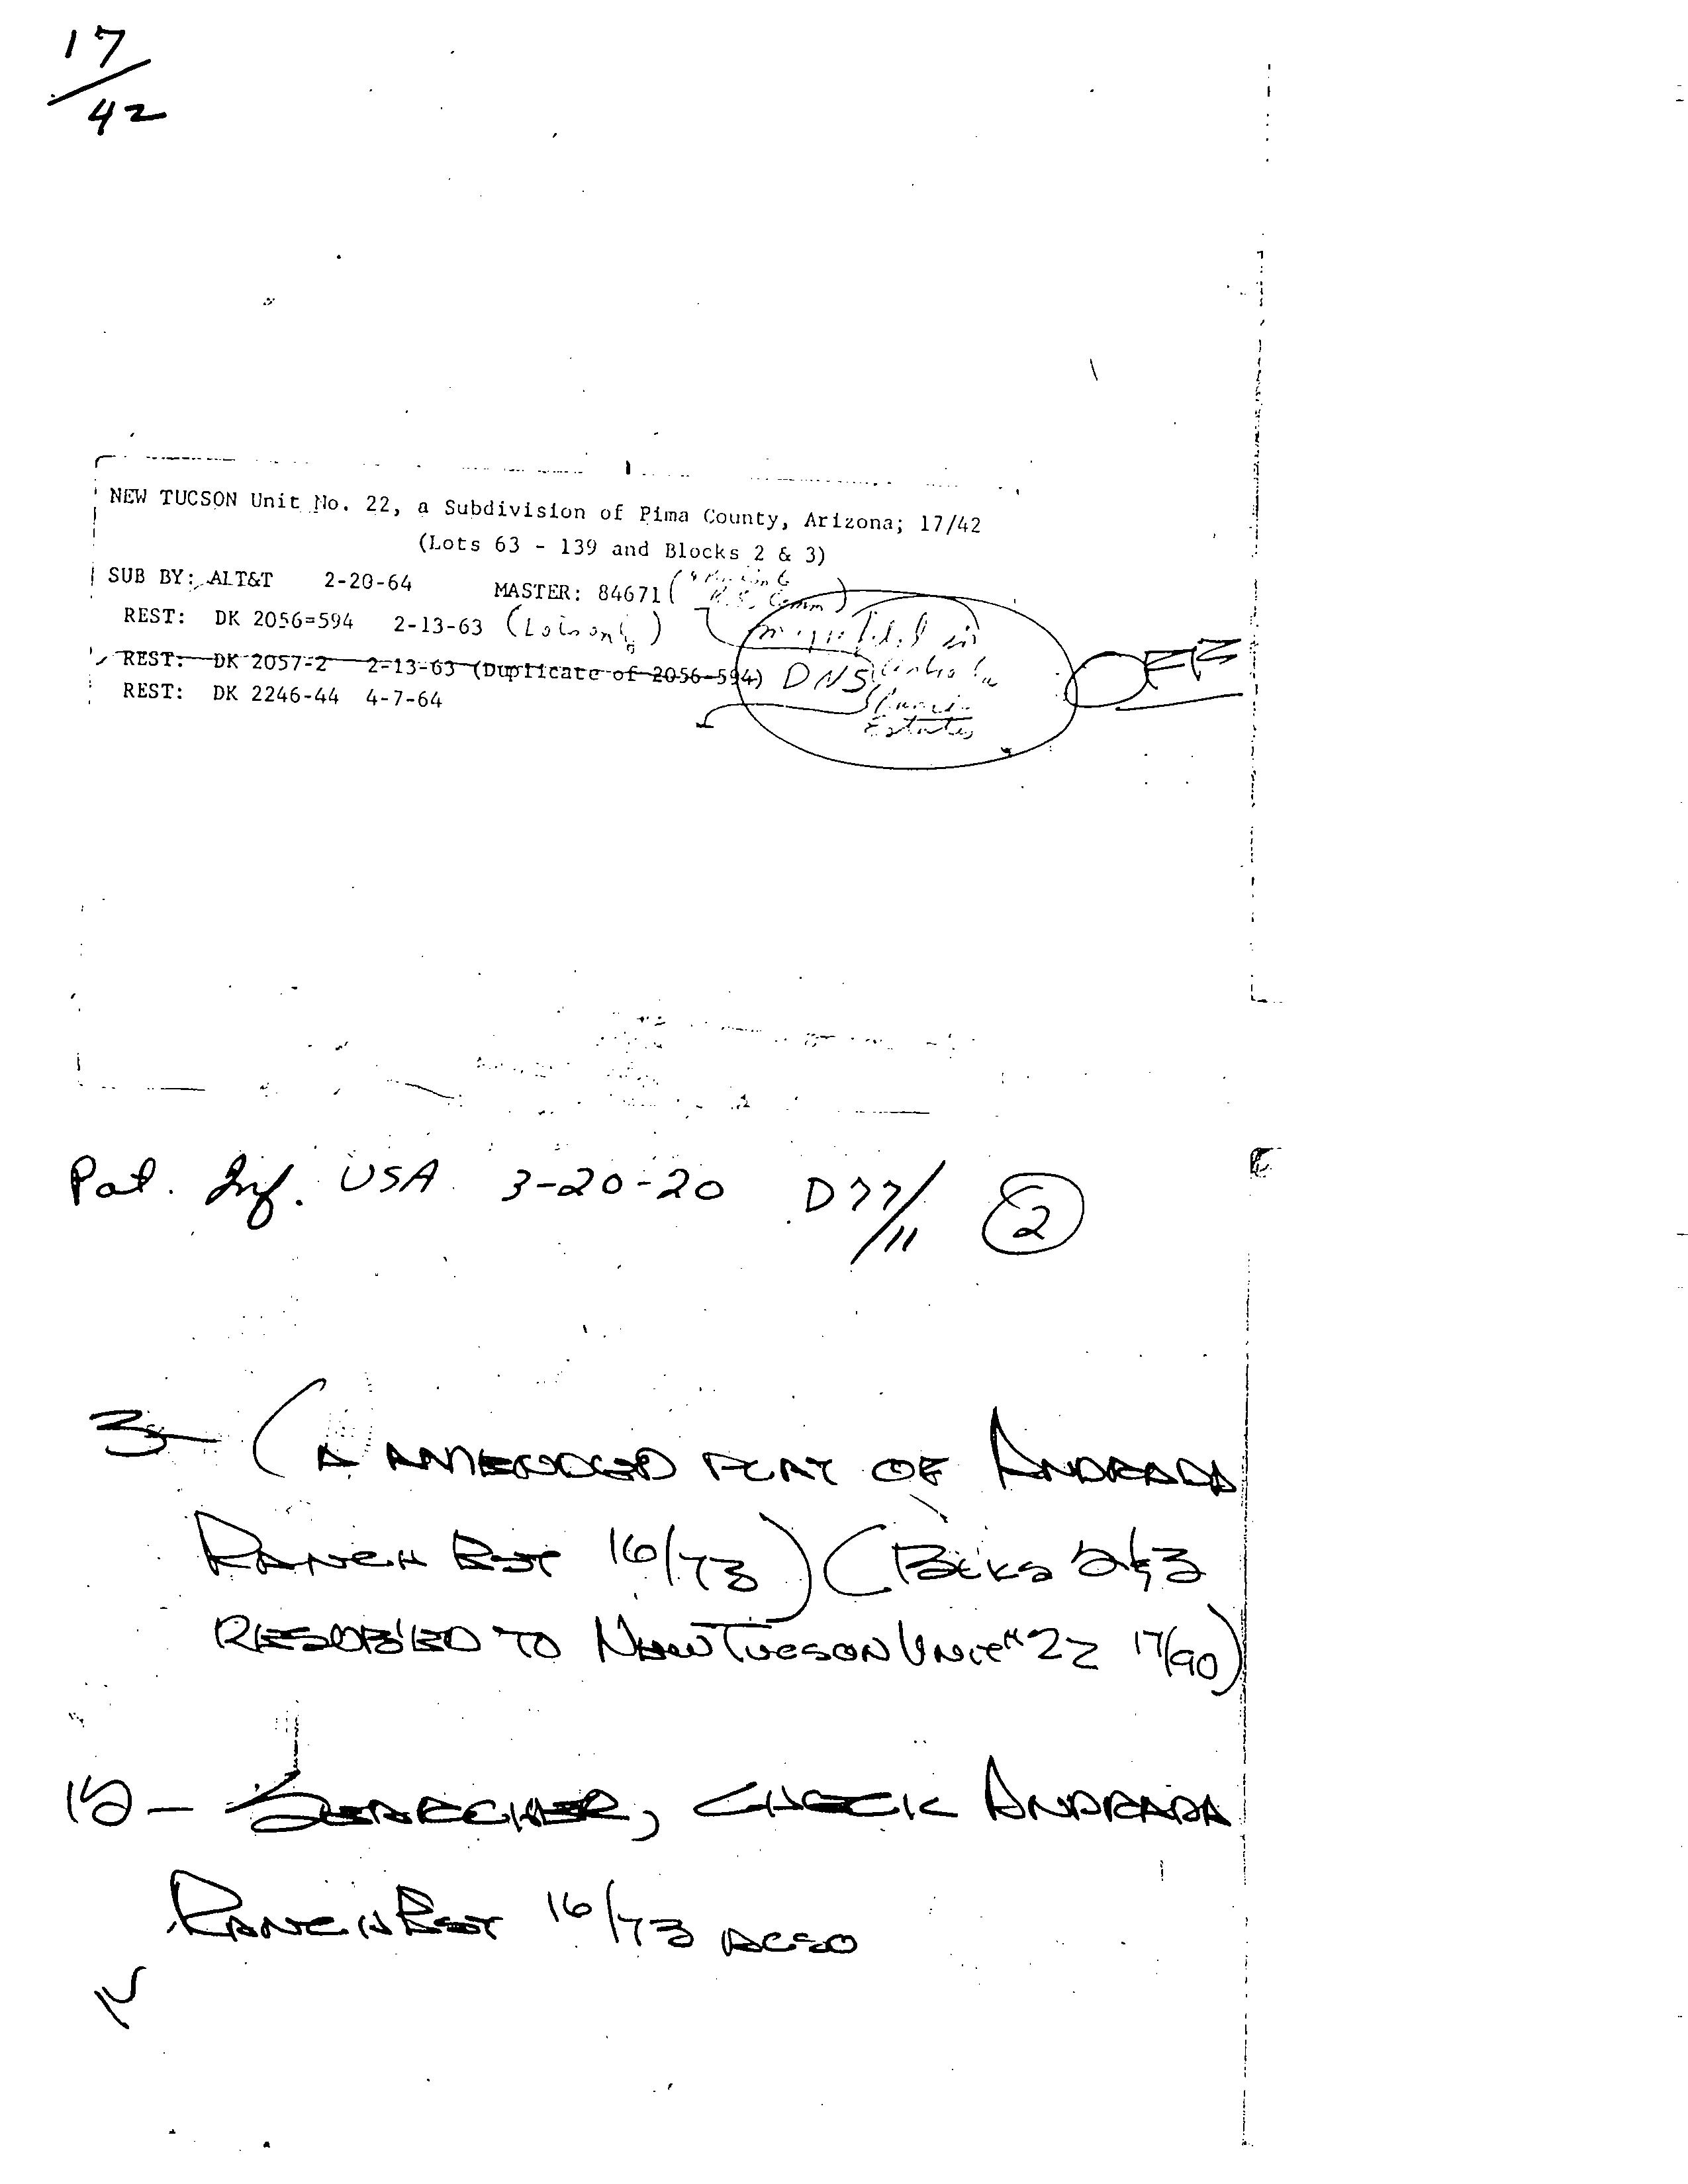 17/42
NEW TUCSON Unit No. 22, a Subdivision of Pima County, Arizona; 17/42
(Lots 63 - 139 and Blocks 2 & 3)
SUB BY: ALT&T 2-20-64 MASTER: 84671
REST: DK 2056=594 2-13-63 (Lots only)
REST: DK 2057-2 2-13-63 (Duplicate of 2056-594) DNS
REST: DK 2246-44 4-7-64
Estates
OFF
Pat. Inf. USA 3-20-20 D77/11 2
3- (A AMENDED PLAT OF ANDRADA
RANCH EST 16/73) (BLKS 2&3
RESUB'ED TO NEW TUCSON UNIT #22 17/90)
12- SEARCHER, CHECK ANDRADA
RANCH EST 16/73 ALSO